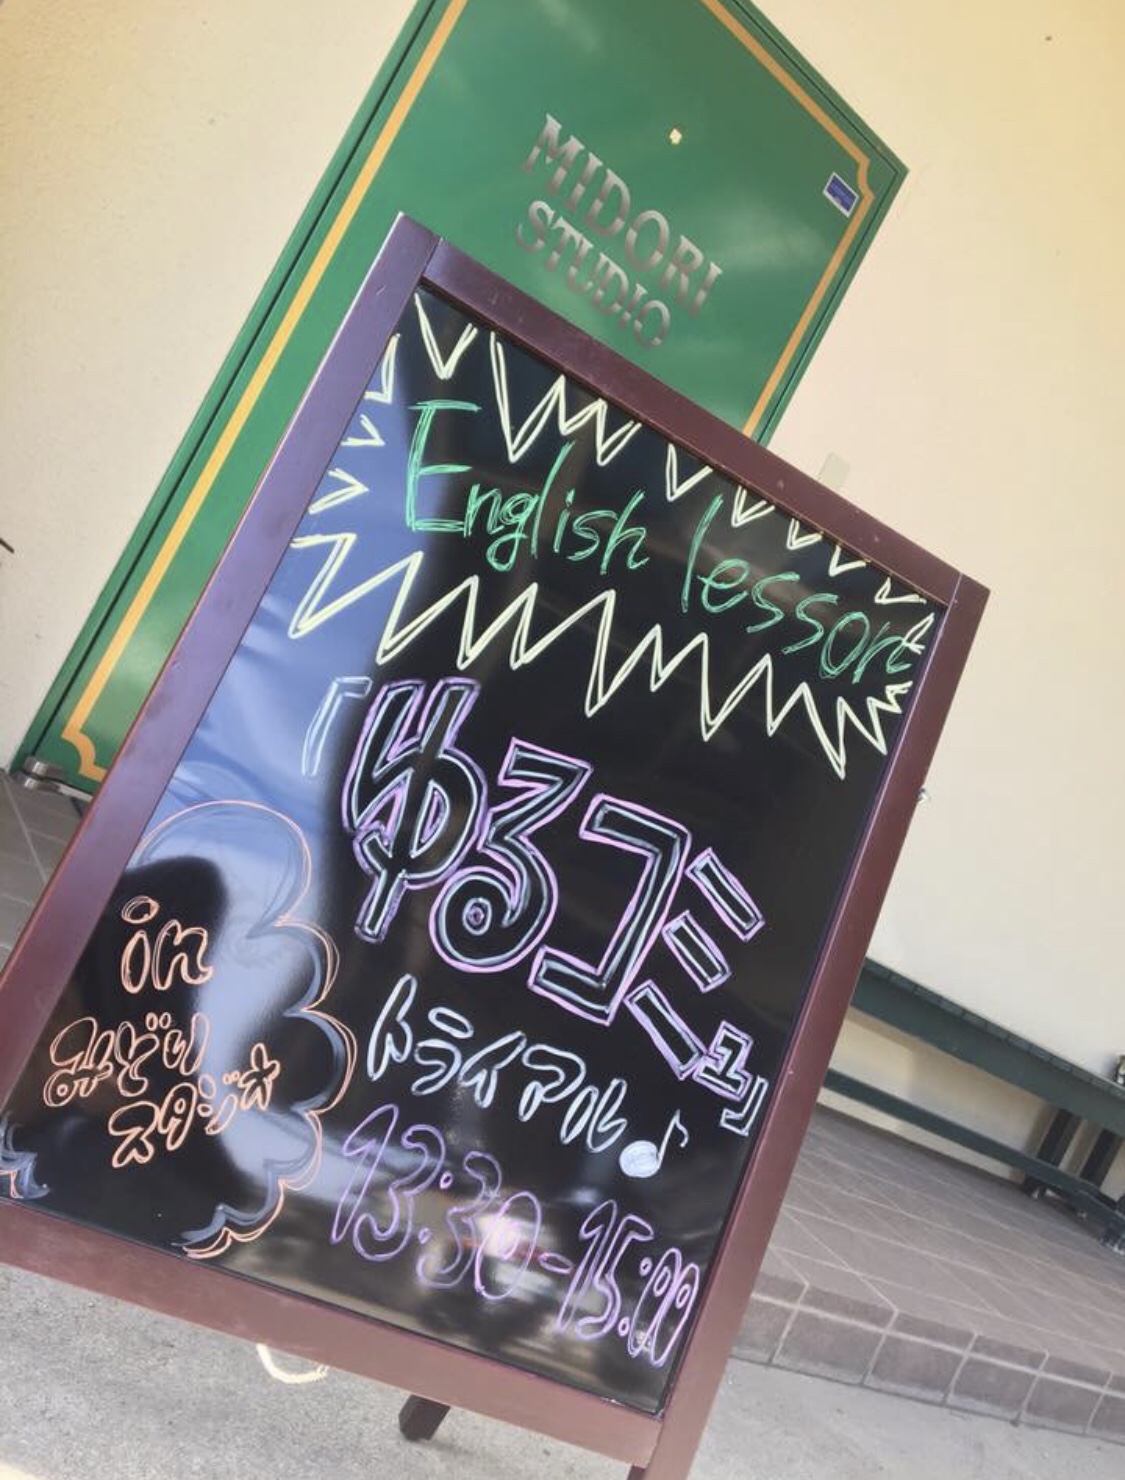 MIDORI
STUDIO
English lesson
「ゆるコミュ」
トライアル♪
13:30-15:00
in
みどり
スタジオ